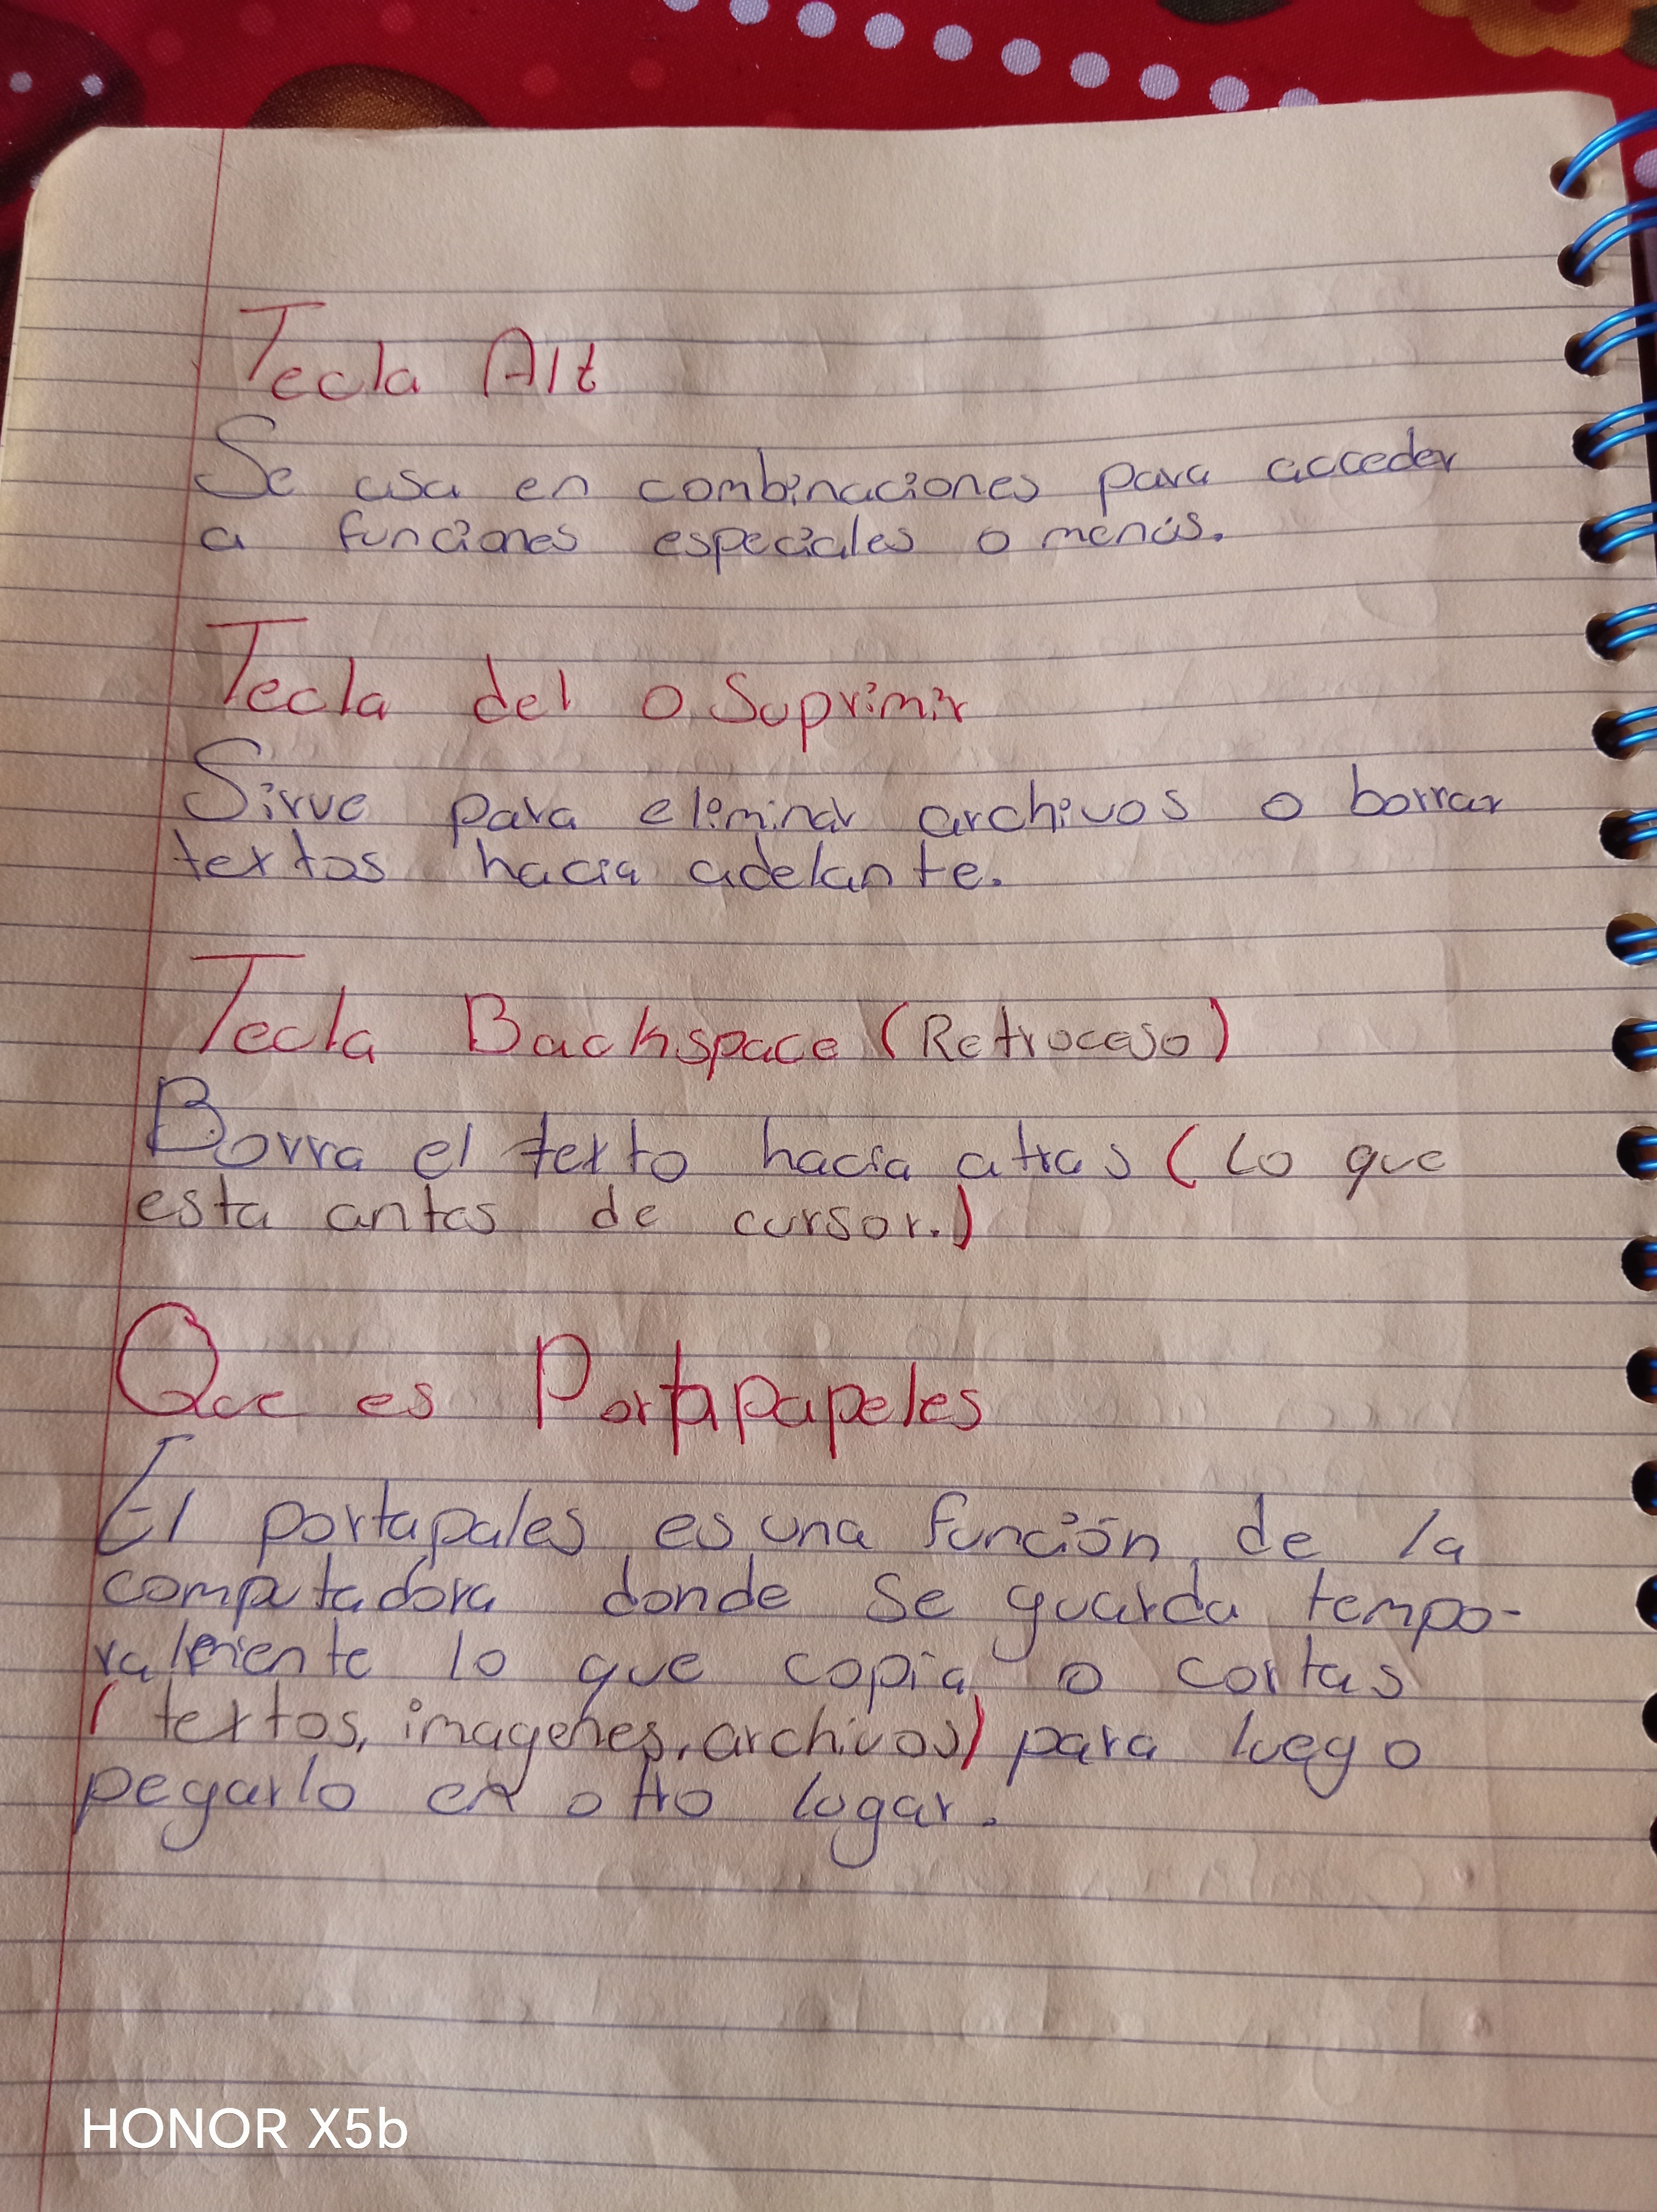 Tecla Alt
Se usa en combinaciones para acceder
a funciones especiales o menús.
Tecla del o Suprimir
Sirve para eliminar archivos o borrar
textos hacia adelante.
Tecla Backspace (Retroceso)
Borra el texto hacia atras (Lo que
esta antes de cursor.)
Que es Portapapeles
El portapales es una función de la
computadora donde se guarda tempo-
ralmente lo que copia o cortas
(textos, imagenes, archivos) para luego
pegarlo en otro lugar.
HONOR X5b